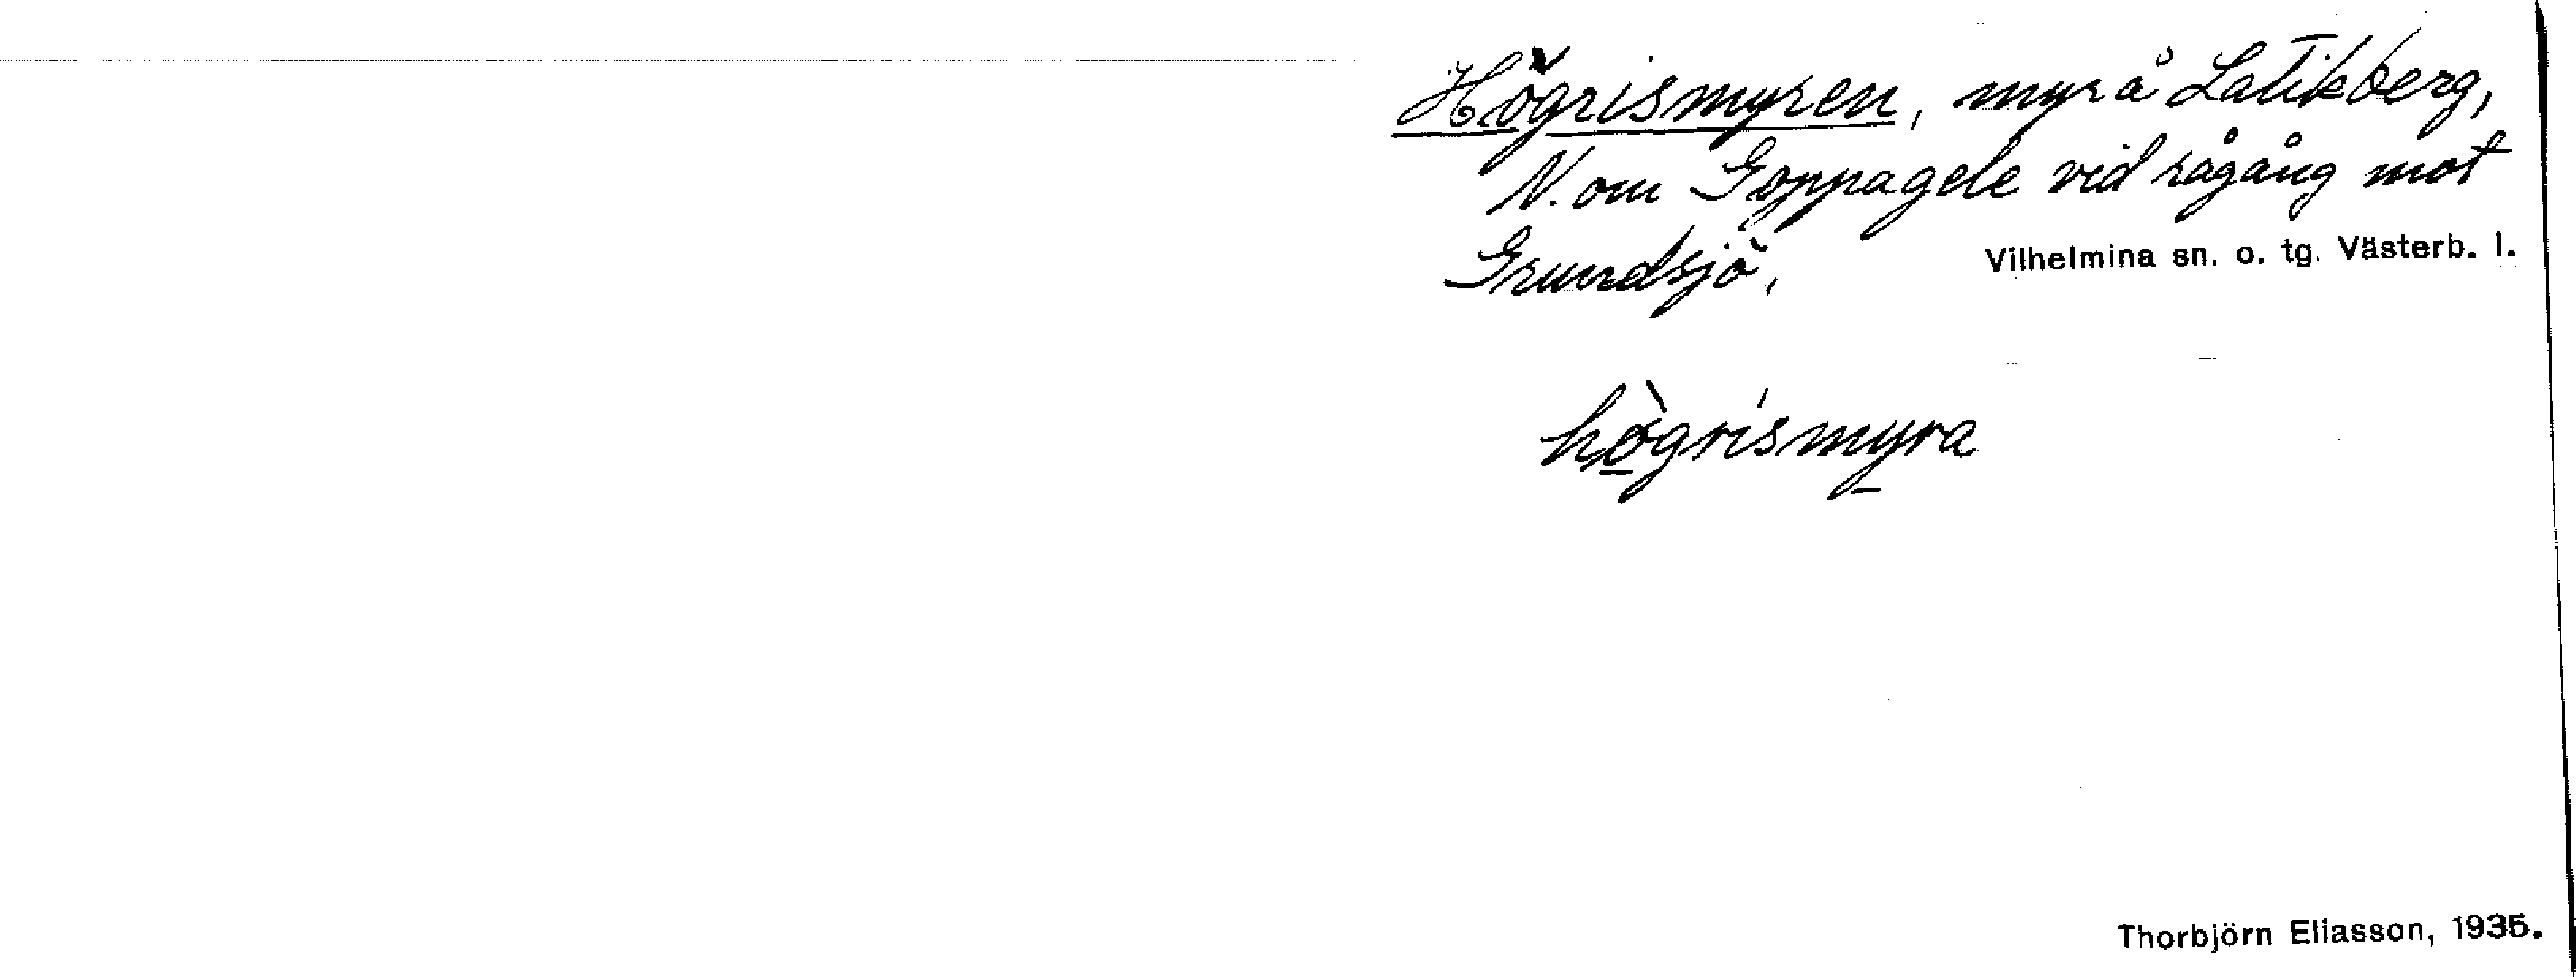 Högrismyren, myr å Latikberg,
N. om Goppagele vid rågång mot
Grundsjö.
Vilhelmina sn. o. tg. Västerb. l.
hògrísmyra
Thorbjörn Eliasson, 1935.